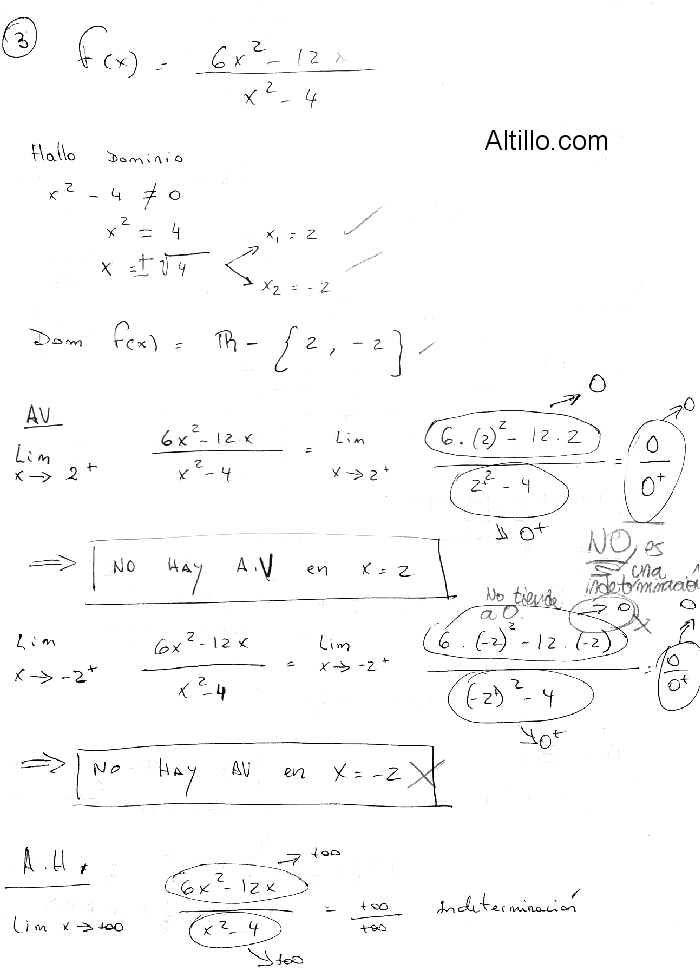 3
f(x) = (6x² - 12x) / (x² - 4)
Altillo.com
Hallo Dominio
x² - 4 ≠ 0
x² = 4
x = ±√4
x₁ = 2 ✓
x₂ = -2 ✓
Dom f(x) = ℝ - {2, -2} ✓
AV
Lim x→2⁺ (6x² - 12x) / (x² - 4) = Lim x→2⁺ (6·(2)² - 12·2) / (2² - 4) = 0 / 0⁺
→ 0
→ 0
↘ 0⁺
⇒ NO HAY A.V en x = 2
NO, es
una
indeterminación
No tiende
a 0.
→ 0 X
→ 0
Lim x→-2⁺ (6x² - 12x) / (x² - 4) = Lim x→-2⁺ (6·(-2)² - 12·(-2)) / ((-2)² - 4) = 0 / 0⁺
↘ 0⁺
⇒ NO HAY AV en x = -2 X
A.H.
→ +∞
Lim x→+∞ (6x² - 12x) / (x² - 4) = +∞ / +∞ Indeterminación
↘ +∞